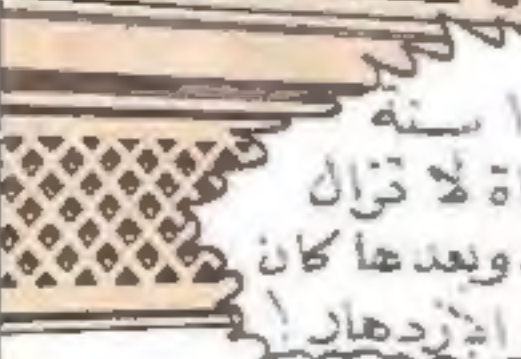 سنه
لا تزال
وبعدها كان
الازدهار !